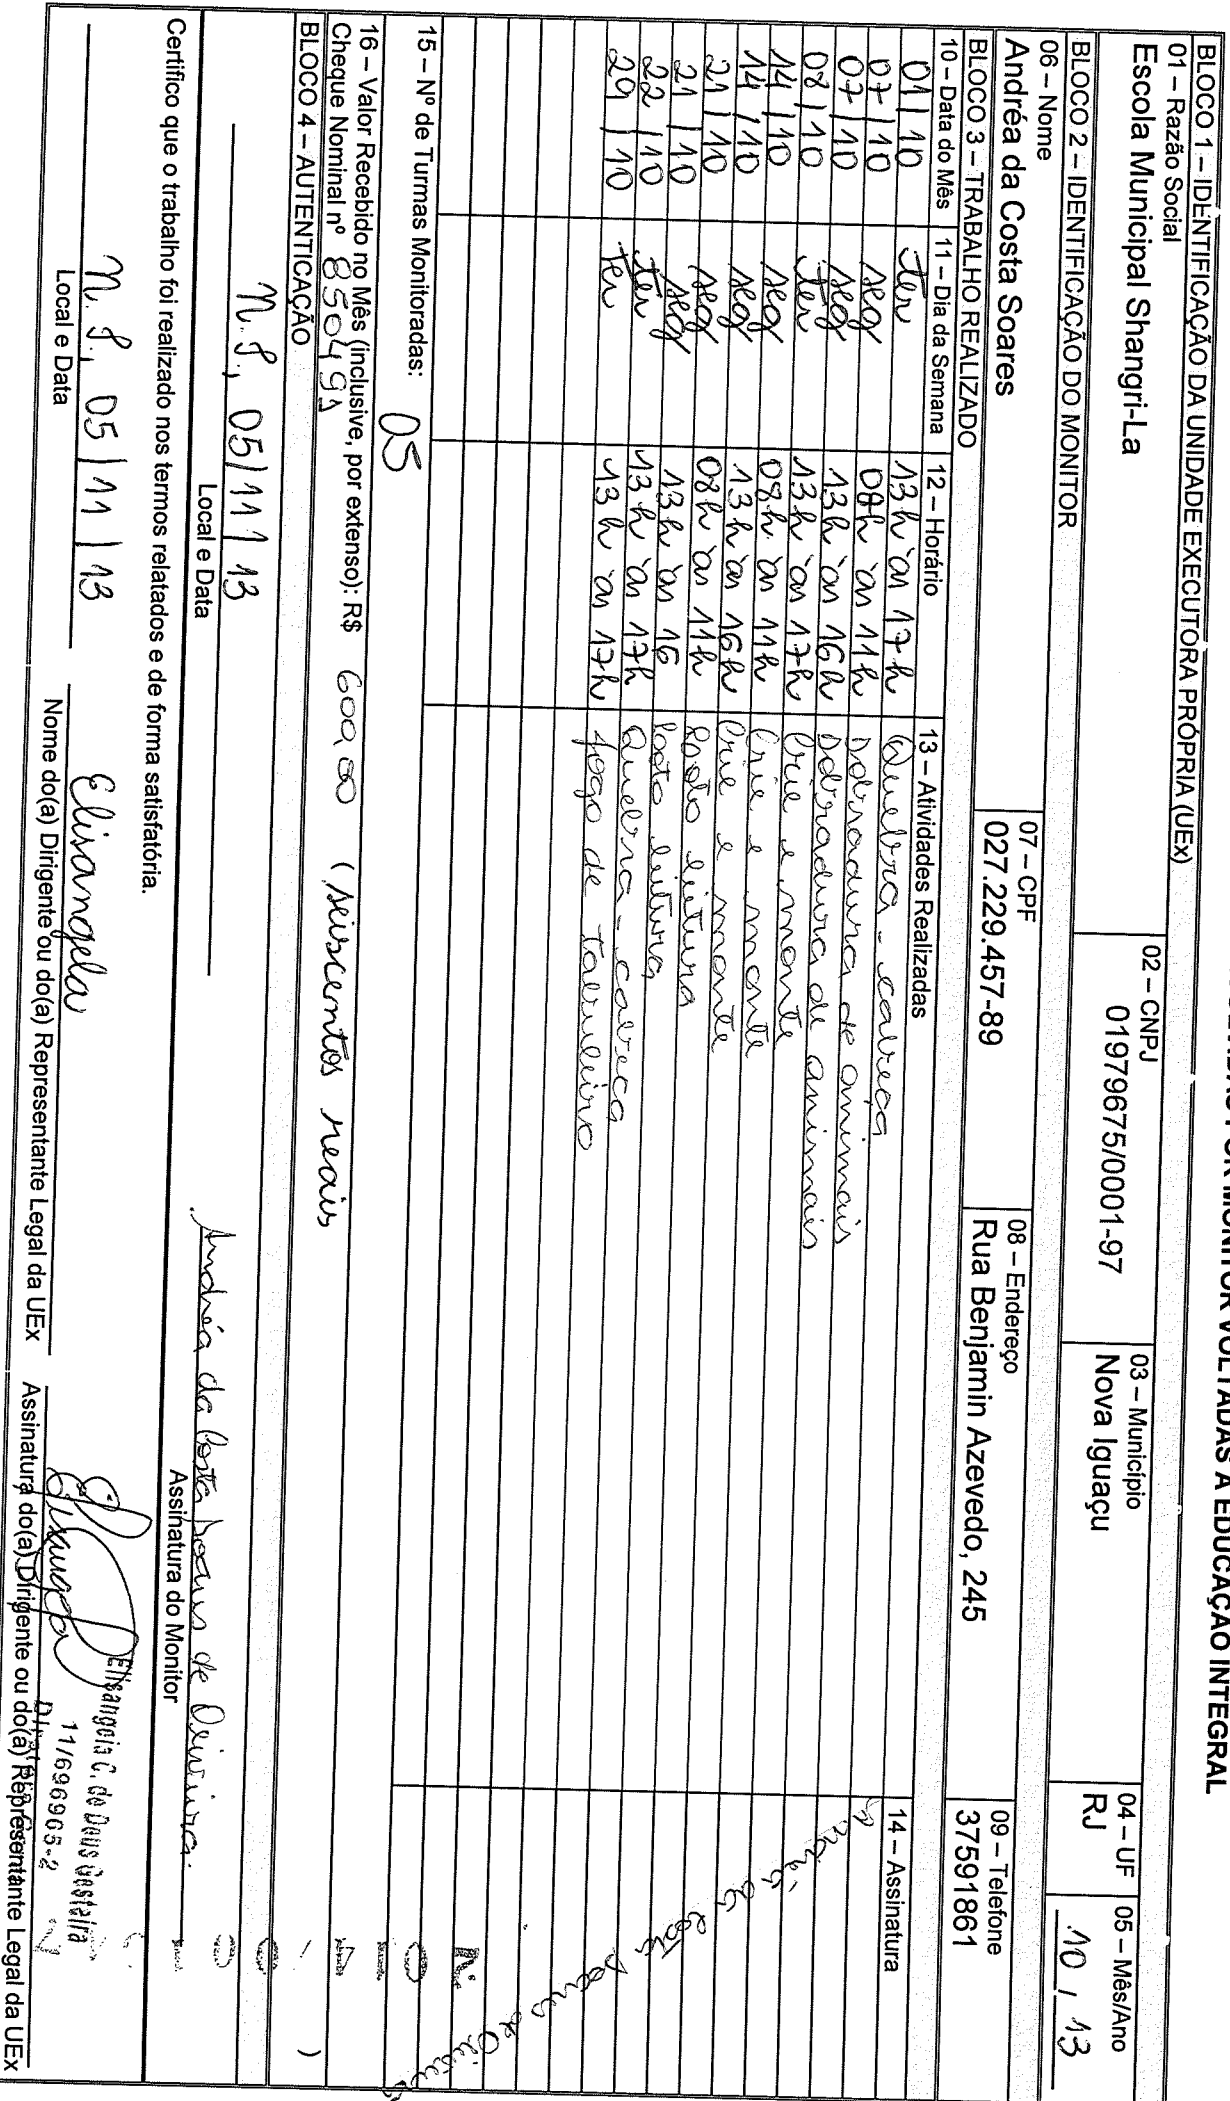 VOLTADAS À EDUCAÇÃO INTEGRAL
BLOCO 1 – IDENTIFICAÇÃO DA UNIDADE EXECUTORA PRÓPRIA (UEx)
01 – Razão Social
Escola Municipal Shangri-La
02 – CNPJ
01979675/0001-97
03 – Município
Nova Iguaçu
04 – UF
RJ
05 – Mês/Ano
10 / 13
BLOCO 2 – IDENTIFICAÇÃO DO MONITOR
06 – Nome
Andréa da Costa Soares
07 – CPF
027.229.457-89
08 – Endereço
Rua Benjamin Azevedo, 245
09 – Telefone
37591861
BLOCO 3 – TRABALHO REALIZADO
10 – Data do Mês 11 – Dia da Semana 12 – Horário 13 – Atividades Realizadas 14 – Assinatura
01/10 ter 13h às 17h Quebra-cabeça
07/10 seg 08h às 11h Dobradura de animais
07/10 seg 13h às 16h Dobradura de animais
08/10 ter 13h às 17h Crie e monte
14/10 seg 08h às 11h Crie e monte
14/10 seg 13h às 16h Crie e monte
21/10 seg 08h às 11h leitura
21/10 seg 13h às 16 leitura
22/10 ter 13h às 17h Quebra-cabeça
29/10 ter 13h às 17h Jogo de Tabuleiro
Andréia da Costa Soares de Oliveira
15 – Nº de Turmas Monitoradas: 05
16 – Valor Recebido no Mês (inclusive, por extenso): R$ 600,00 (seiscentos reais )
Cheque Nominal nº 850491
BLOCO 4 – AUTENTICAÇÃO
N. I., 05/11/13
Local e Data
Andréia da Costa Soares de Oliveira
Assinatura do Monitor
Certifico que o trabalho foi realizado nos termos relatados e de forma satisfatória.
N. I., 05/11/13
Local e Data
Elisangela
Nome do(a) Dirigente ou do(a) Representante Legal da UEx
Elisangela
Elisangela C. de Deus
11/696965-2
Assinatura do(a) Dirigente ou do(a) Representante Legal da UEx